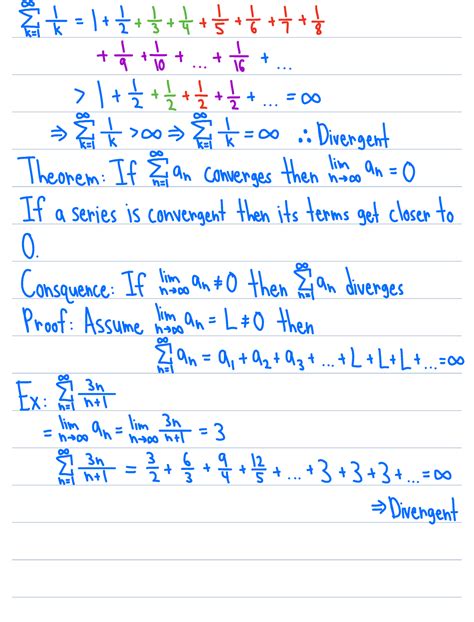 ∞∑k=1 1/k = 1 + 1/2 + 1/3 + 1/4 + 1/5 + 1/6 + 1/7 + 1/8
+ 1/9 + 1/10 + ... + 1/16 + ...
> 1 + 1/2 + 1/2 + 1/2 + 1/2 + ... = ∞
⇒ ∞∑k=1 1/k > ∞ ⇒ ∞∑k=1 1/k = ∞ ∴ Divergent
Theorem: If ∞∑n=1 an converges then lim n→∞ an = 0
If a series is convergent then its terms get closer to
0.
Consquence: If lim n→∞ an ≠ 0 then ∞∑n=1 an diverges
Proof: Assume lim n→∞ an = L ≠ 0 then
∞∑n=1 an = a1 + a2 + a3 + ... + L + L + L + ... = ∞
Ex: ∞∑n=1 3n/n+1
= lim n→∞ an = lim n→∞ 3n/n+1 = 3
∞∑n=1 3n/n+1 = 3/2 + 6/3 + 9/4 + 12/5 + ... + 3 + 3 + 3 + ... = ∞
⇒ Divergent